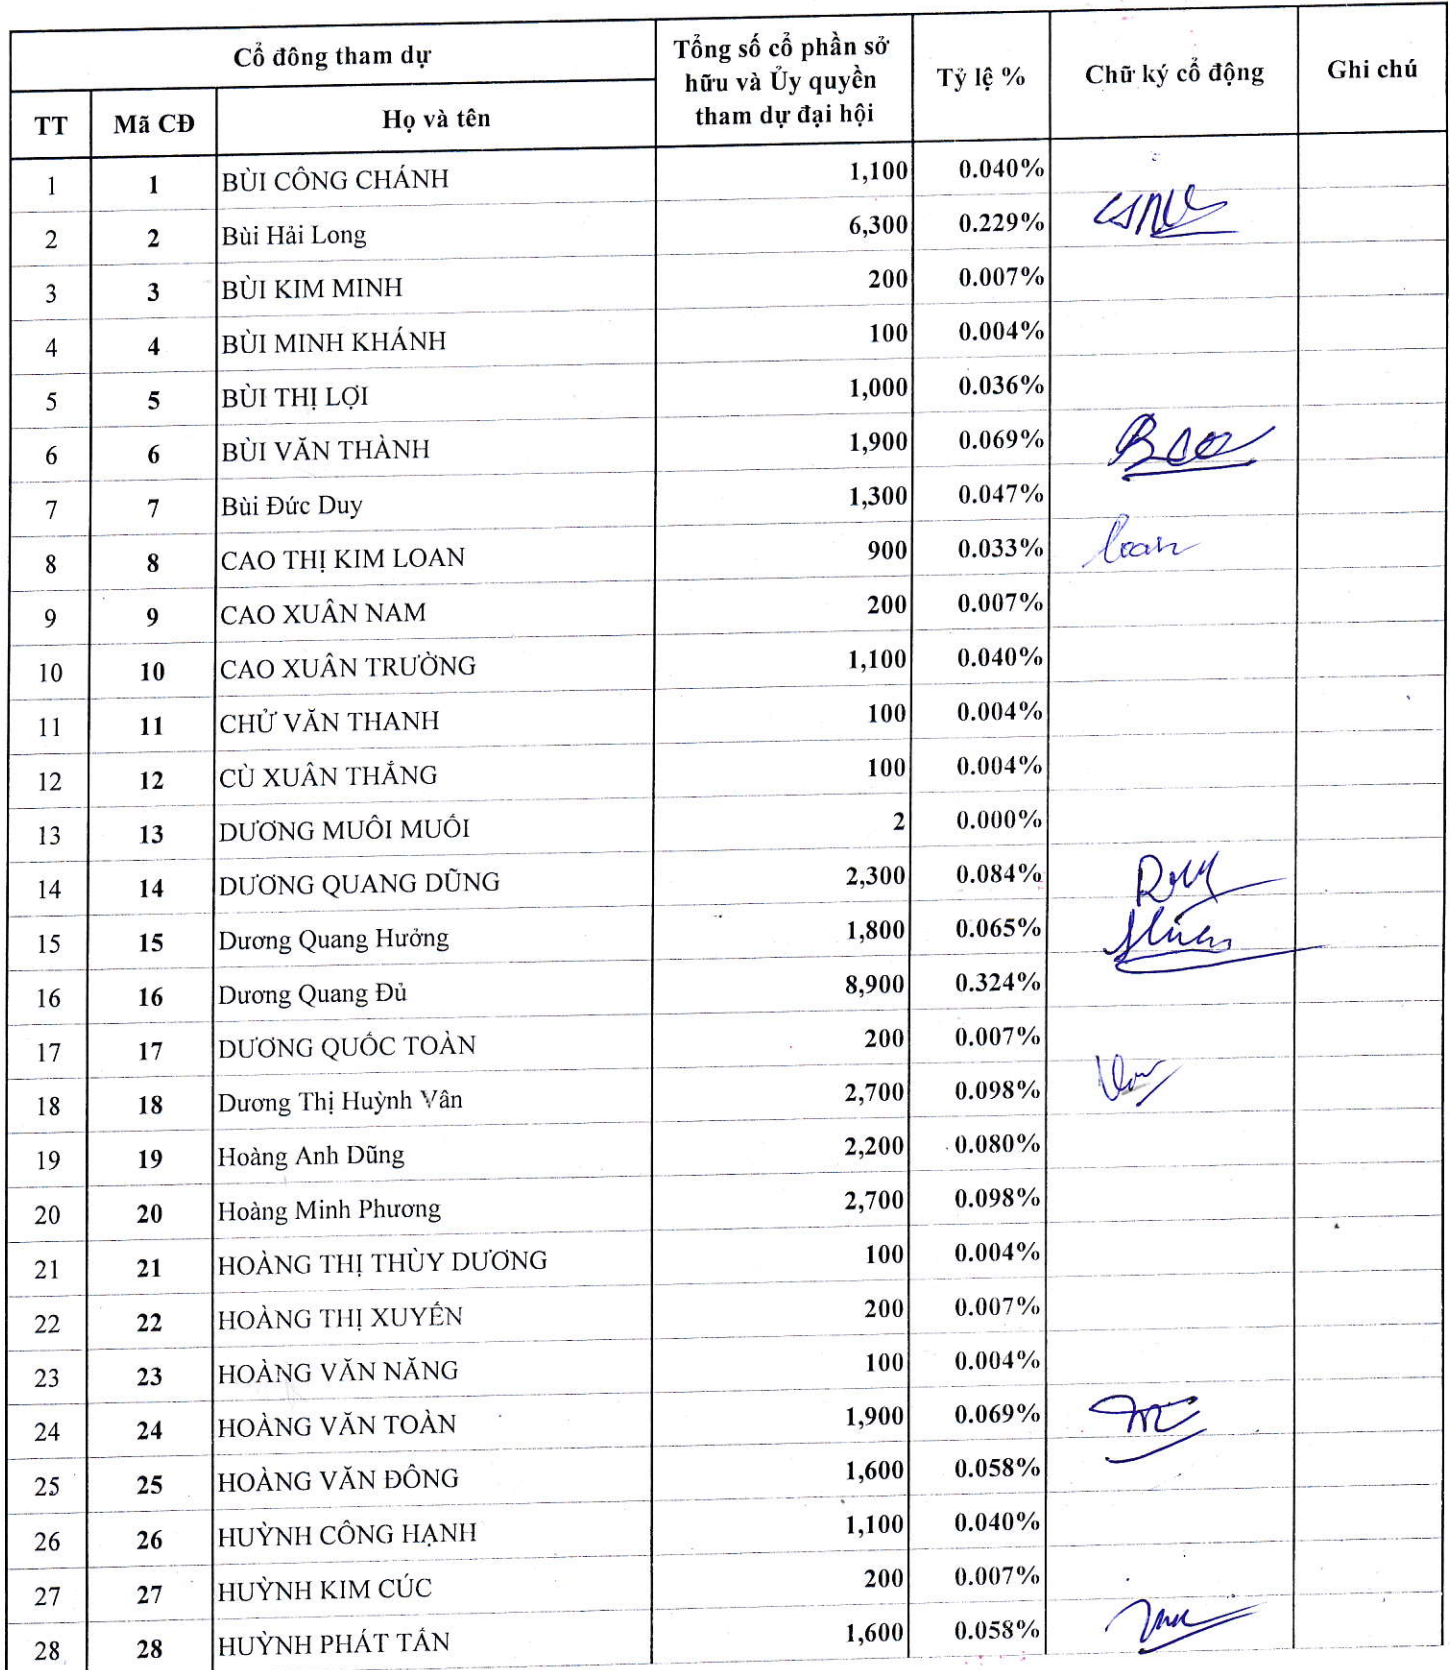 Cổ đông tham dự
Tổng số cổ phần sở hữu và Ủy quyền tham dự đại hội
Tỷ lệ %
Chữ ký cổ động
Ghi chú
TT Mã CĐ Họ và tên
1 1 BÙI CÔNG CHÁNH 1,100 0.040%
2 2 Bùi Hải Long 6,300 0.229%
3 3 BÙI KIM MINH 200 0.007%
4 4 BÙI MINH KHÁNH 100 0.004%
5 5 BÙI THỊ LỢI 1,000 0.036%
6 6 BÙI VĂN THÀNH 1,900 0.069%
7 7 Bùi Đức Duy 1,300 0.047%
8 8 CAO THỊ KIM LOAN 900 0.033% loan
9 9 CAO XUÂN NAM 200 0.007%
10 10 CAO XUÂN TRƯỜNG 1,100 0.040%
11 11 CHỬ VĂN THANH 100 0.004%
12 12 CÙ XUÂN THẮNG 100 0.004%
13 13 DƯƠNG MUÔI MUỐI 2 0.000%
14 14 DƯƠNG QUANG DŨNG 2,300 0.084%
15 15 Dương Quang Hưởng 1,800 0.065%
16 16 Dương Quang Đủ 8,900 0.324%
17 17 DƯƠNG QUỐC TOÀN 200 0.007%
18 18 Dương Thị Huỳnh Vân 2,700 0.098%
19 19 Hoàng Anh Dũng 2,200 0.080%
20 20 Hoàng Minh Phương 2,700 0.098%
21 21 HOÀNG THỊ THÙY DƯƠNG 100 0.004%
22 22 HOÀNG THỊ XUYẾN 200 0.007%
23 23 HOÀNG VĂN NĂNG 100 0.004%
24 24 HOÀNG VĂN TOÀN 1,900 0.069%
25 25 HOÀNG VĂN ĐÔNG 1,600 0.058%
26 26 HUỲNH CÔNG HẠNH 1,100 0.040%
27 27 HUỲNH KIM CÚC 200 0.007%
28 28 HUỲNH PHÁT TẤN 1,600 0.058%